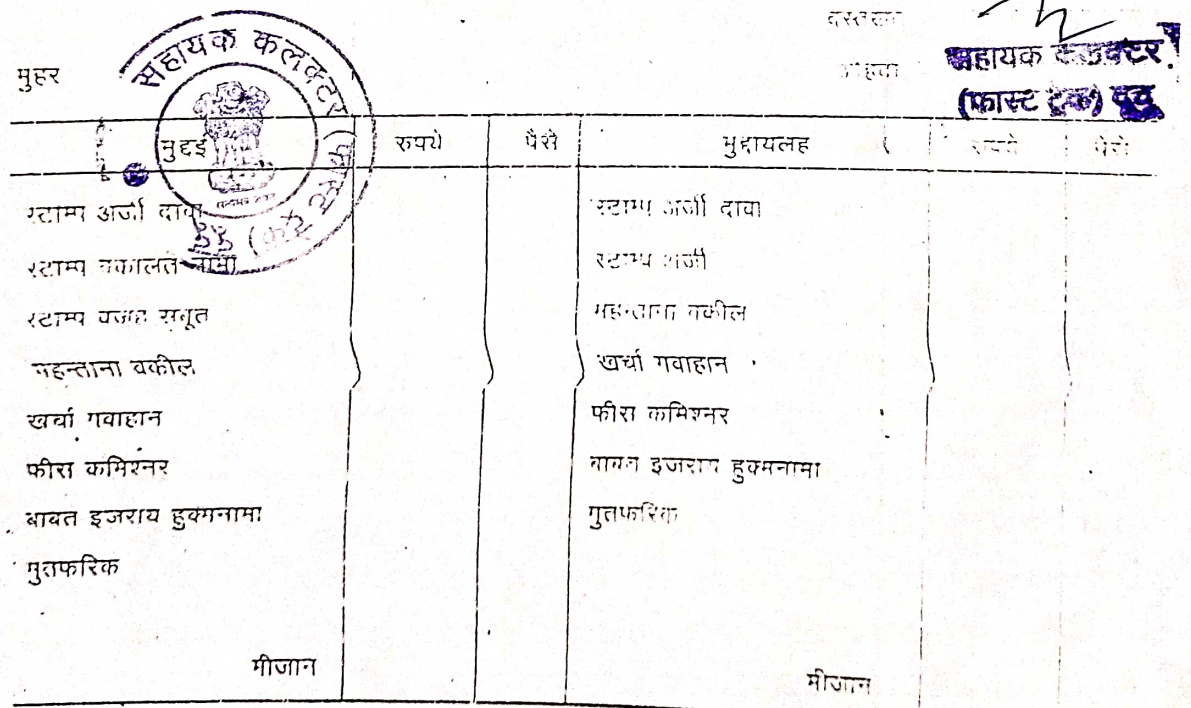 दस्तखत
मुहर
ओहदा
सहायक कलक्टर
(फास्ट ट्रेक) दूदू
सहायक कलक्टर (फास्ट ट्रेक) दूदू
मुद्दई रुपये पैसे मुद्दायलह रुपये पैसे
स्टाम्प अर्जी दावा स्टाम्प अर्जी दावा
स्टाम्प वकालत नामा स्टाम्प अर्जी
स्टाम्प वजह सबूत महन्ताना वकील
महन्ताना वकील खर्चा गवाहान
खर्चा गवाहान फीस कमिश्नर
फीस कमिश्नर बाबत इजराय हुक्मनामा
बाबत इजराय हुक्मनामा मुतफरिक
मुतफरिक
मीजान मीजान